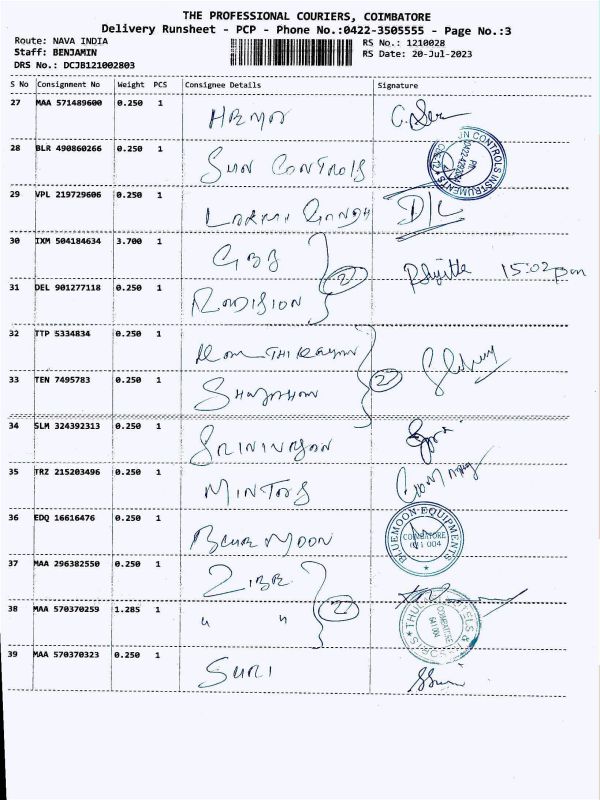 THE PROFESSIONAL COURIERS, COIMBATORE
Delivery Runsheet - PCP - Phone No.:0422-3505555 - Page No.:3
Route: NAVA INDIA RS No.: 1210028
Staff: BENJAMIN RS Date: 20-Jul-2023
DRS No.: DCJB121002803
S No Consignment No Weight PCS Consignee Details Signature
27 MAA 571489600 0.250 1
28 BLR 490860266 0.250 1 SUN CONTROLS
29 VPL 219729606 0.250 1 GANDHI D/C
30 IXM 504184634 3.700 1 GBS 2 15:02 pm
31 DEL 901277118 0.250 1 RADISION
32 TTP 5334834 0.250 1
33 TEN 7495783 0.250 1 2
34 SLM 324392313 0.250 1
35 TRZ 215203496 0.250 1
36 EDQ 16616476 0.250 1 BLUE MOON BLUEMOON EQUIPMENTS COIMBATORE 641 004
37 MAA 296382550 0.250 1
38 MAA 570370259 1.285 1 " " 2
39 MAA 570370323 0.250 1 SURI